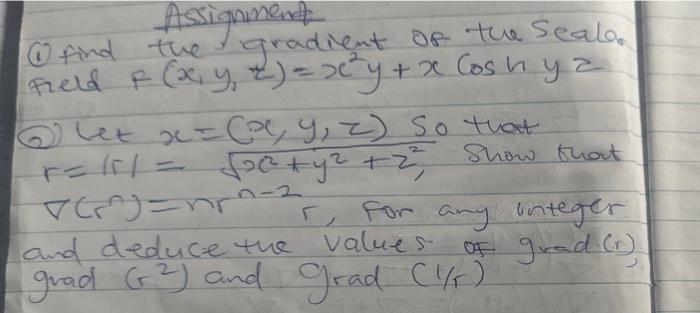 Assignment
① find the gradient of the Scalar
field F(x, y, z) = x²y + x Cosh y z
② Let x = (x, y, z) so that
r = |r| = √x² + y² + z², Show that
∇(rⁿ) = nrⁿ⁻² r, for any integer
and deduce the values of grad (r),
grad (r²) and grad (1/r)